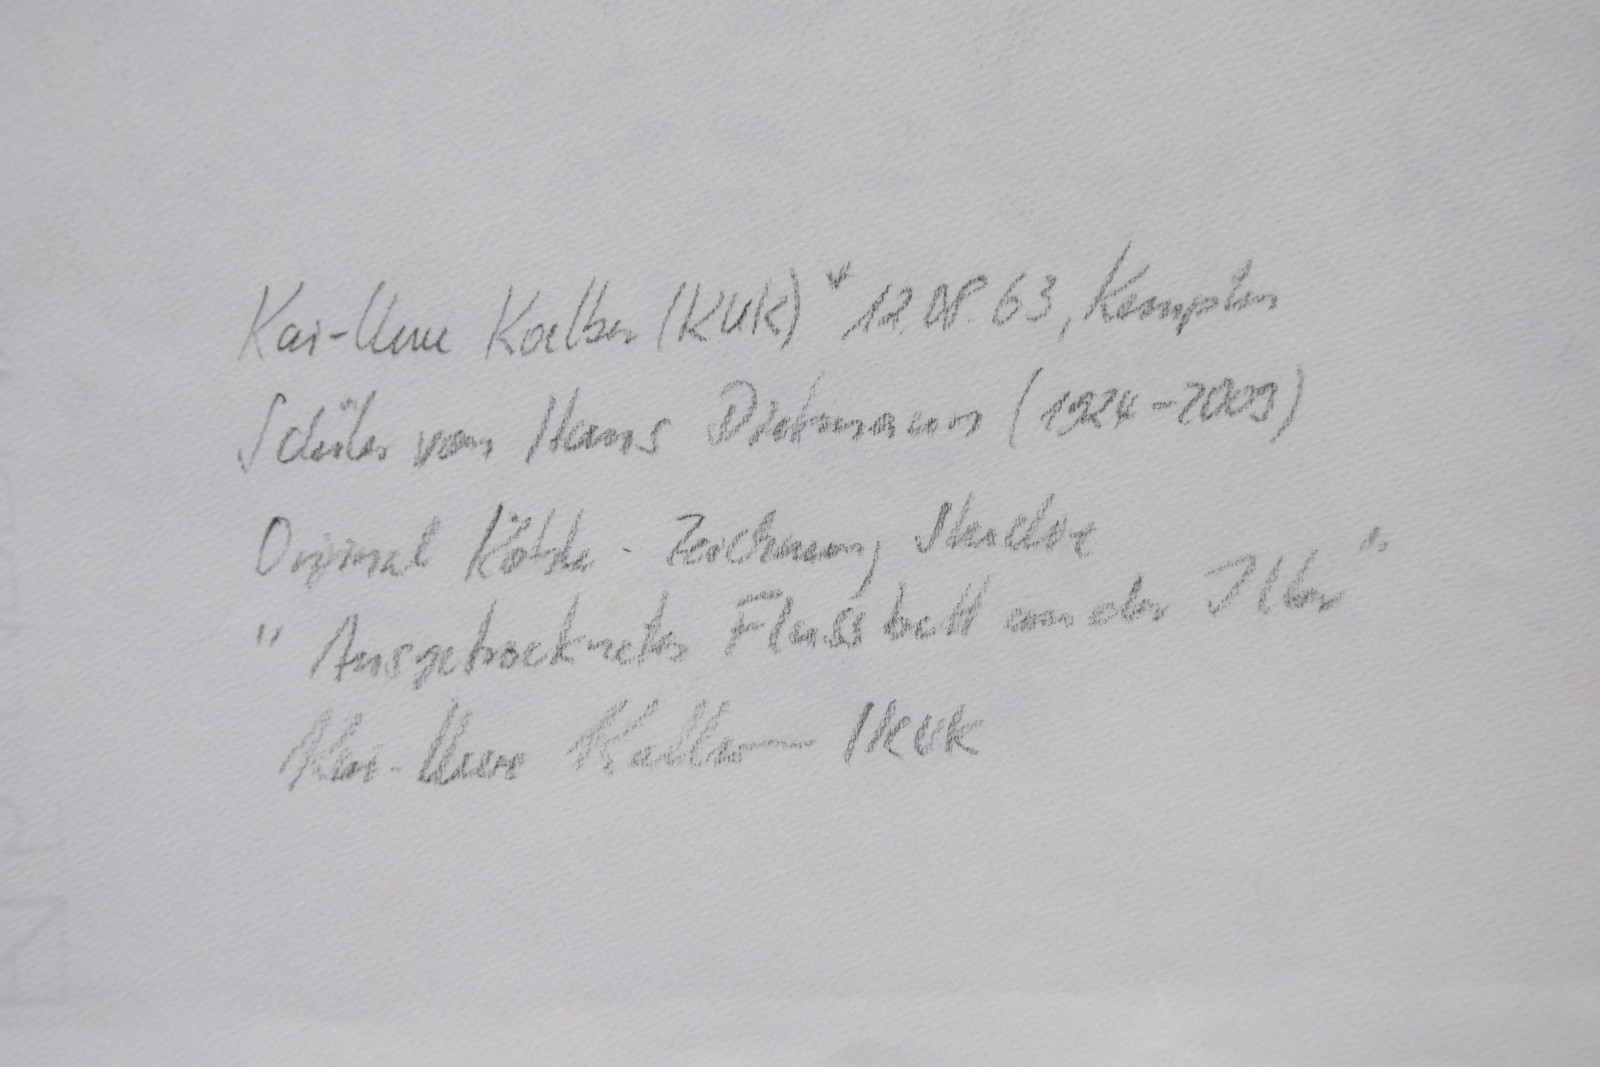 Kai-Uwe Kalber (KUK) * 12.08.63, Kempten
Schüler von Hans Dietmann (1924-2009)
Original Rötel-Zeichnung, Studie
"Ausgetrocknetes Flussbett an der Iller"
Kai-Uwe KUK